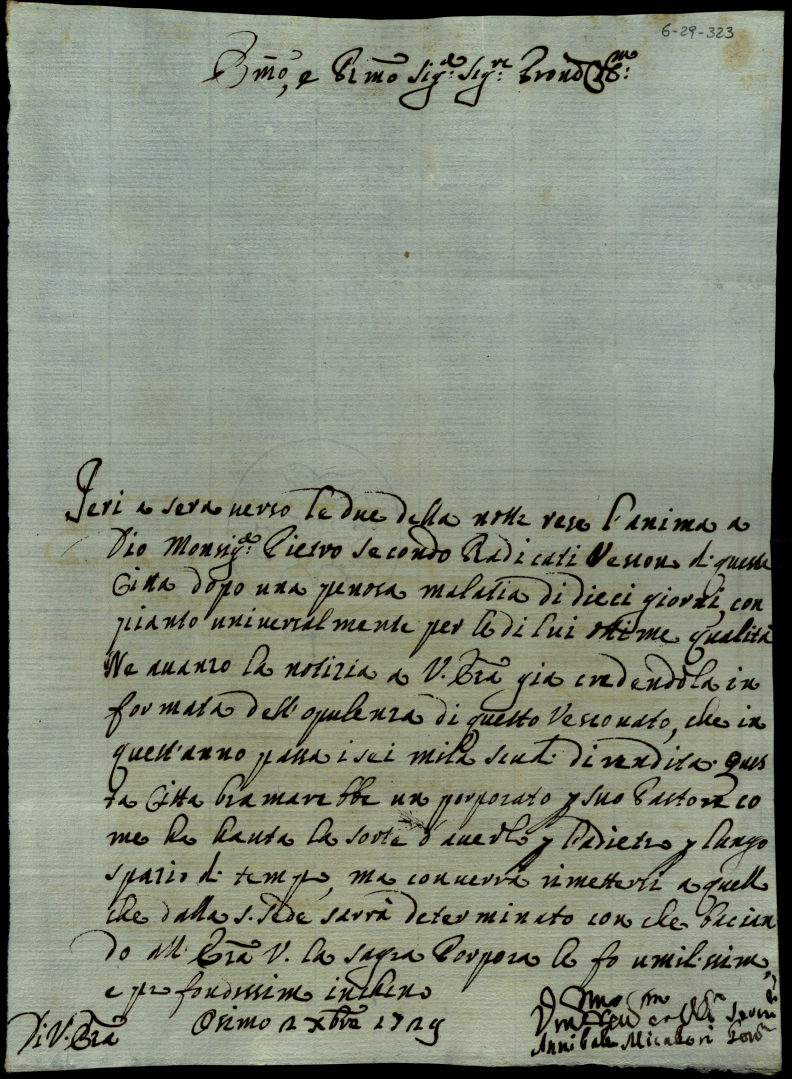 6-29-323
Emo, e Rmo Sig.r Sig.re Prone Col.mo
Ieri a sera verso le due della notte rese l'anima a
Dio Monsig.r Pietro Secondo Radicati Vescou di questa
Citta dopo una penosa malatia di dieci giorni, con
pianto universalmente per le di lui ottime qualità
Ne auanzo la notizia a V. Em̃a già credendola in
formata dell'opulenza di questo Vescouato, che in
quest'anno passa i sei mila scudi di rendita. Ques
ta Citta bramarebbe un porporato p suo Pastore co
me ha hauta la sorte d'auerlo p l'adietro p lungo
spazio di tempo, ma conuerrà rimettersi a quell
che dalla S. Sede sarrà determinato con che bacian
do all' Em̃a V. la sagra Porpora le fo umilissim,
e profondissim inchino
Di V. Em̃a Osimo 2 Xbre 1729
Annibale Micalori